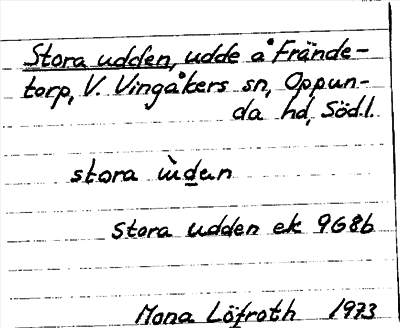 Stora udden, udde å Frände-
torp, V. Vingåkers sn, Oppun-
da hd, Södl.
stora ùdan
stora udden ek 9G8b
Mona Löfroth 1973